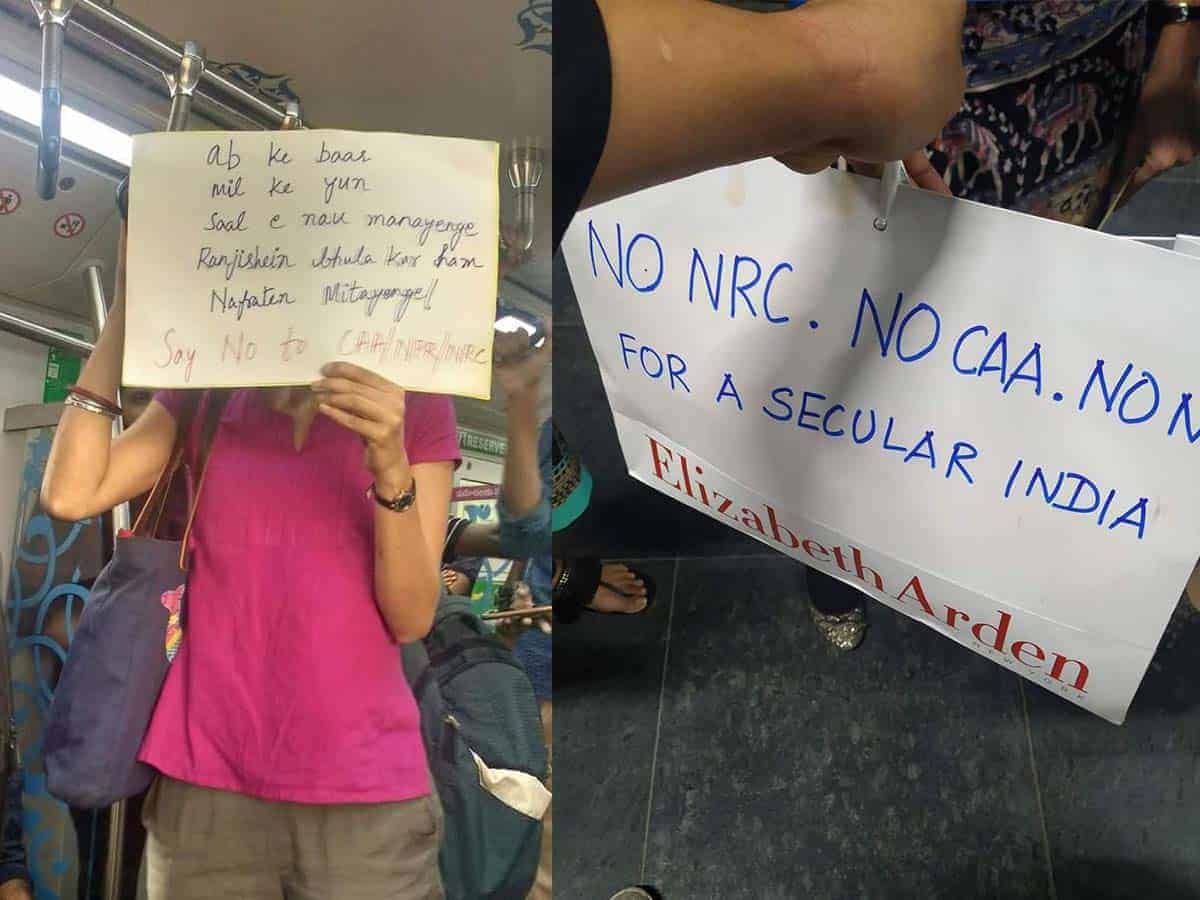 ab ke baar
mil ke yun
Saal e nau manayenge
Ranjishein bhula kar ham
Nafraten Mitayenge!!
Say No to CAA/NPR/NRC
RESERVE
NO NRC. NO CAA. NO N
FOR A SECULAR INDIA
Elizabeth Arden
NEW YORK